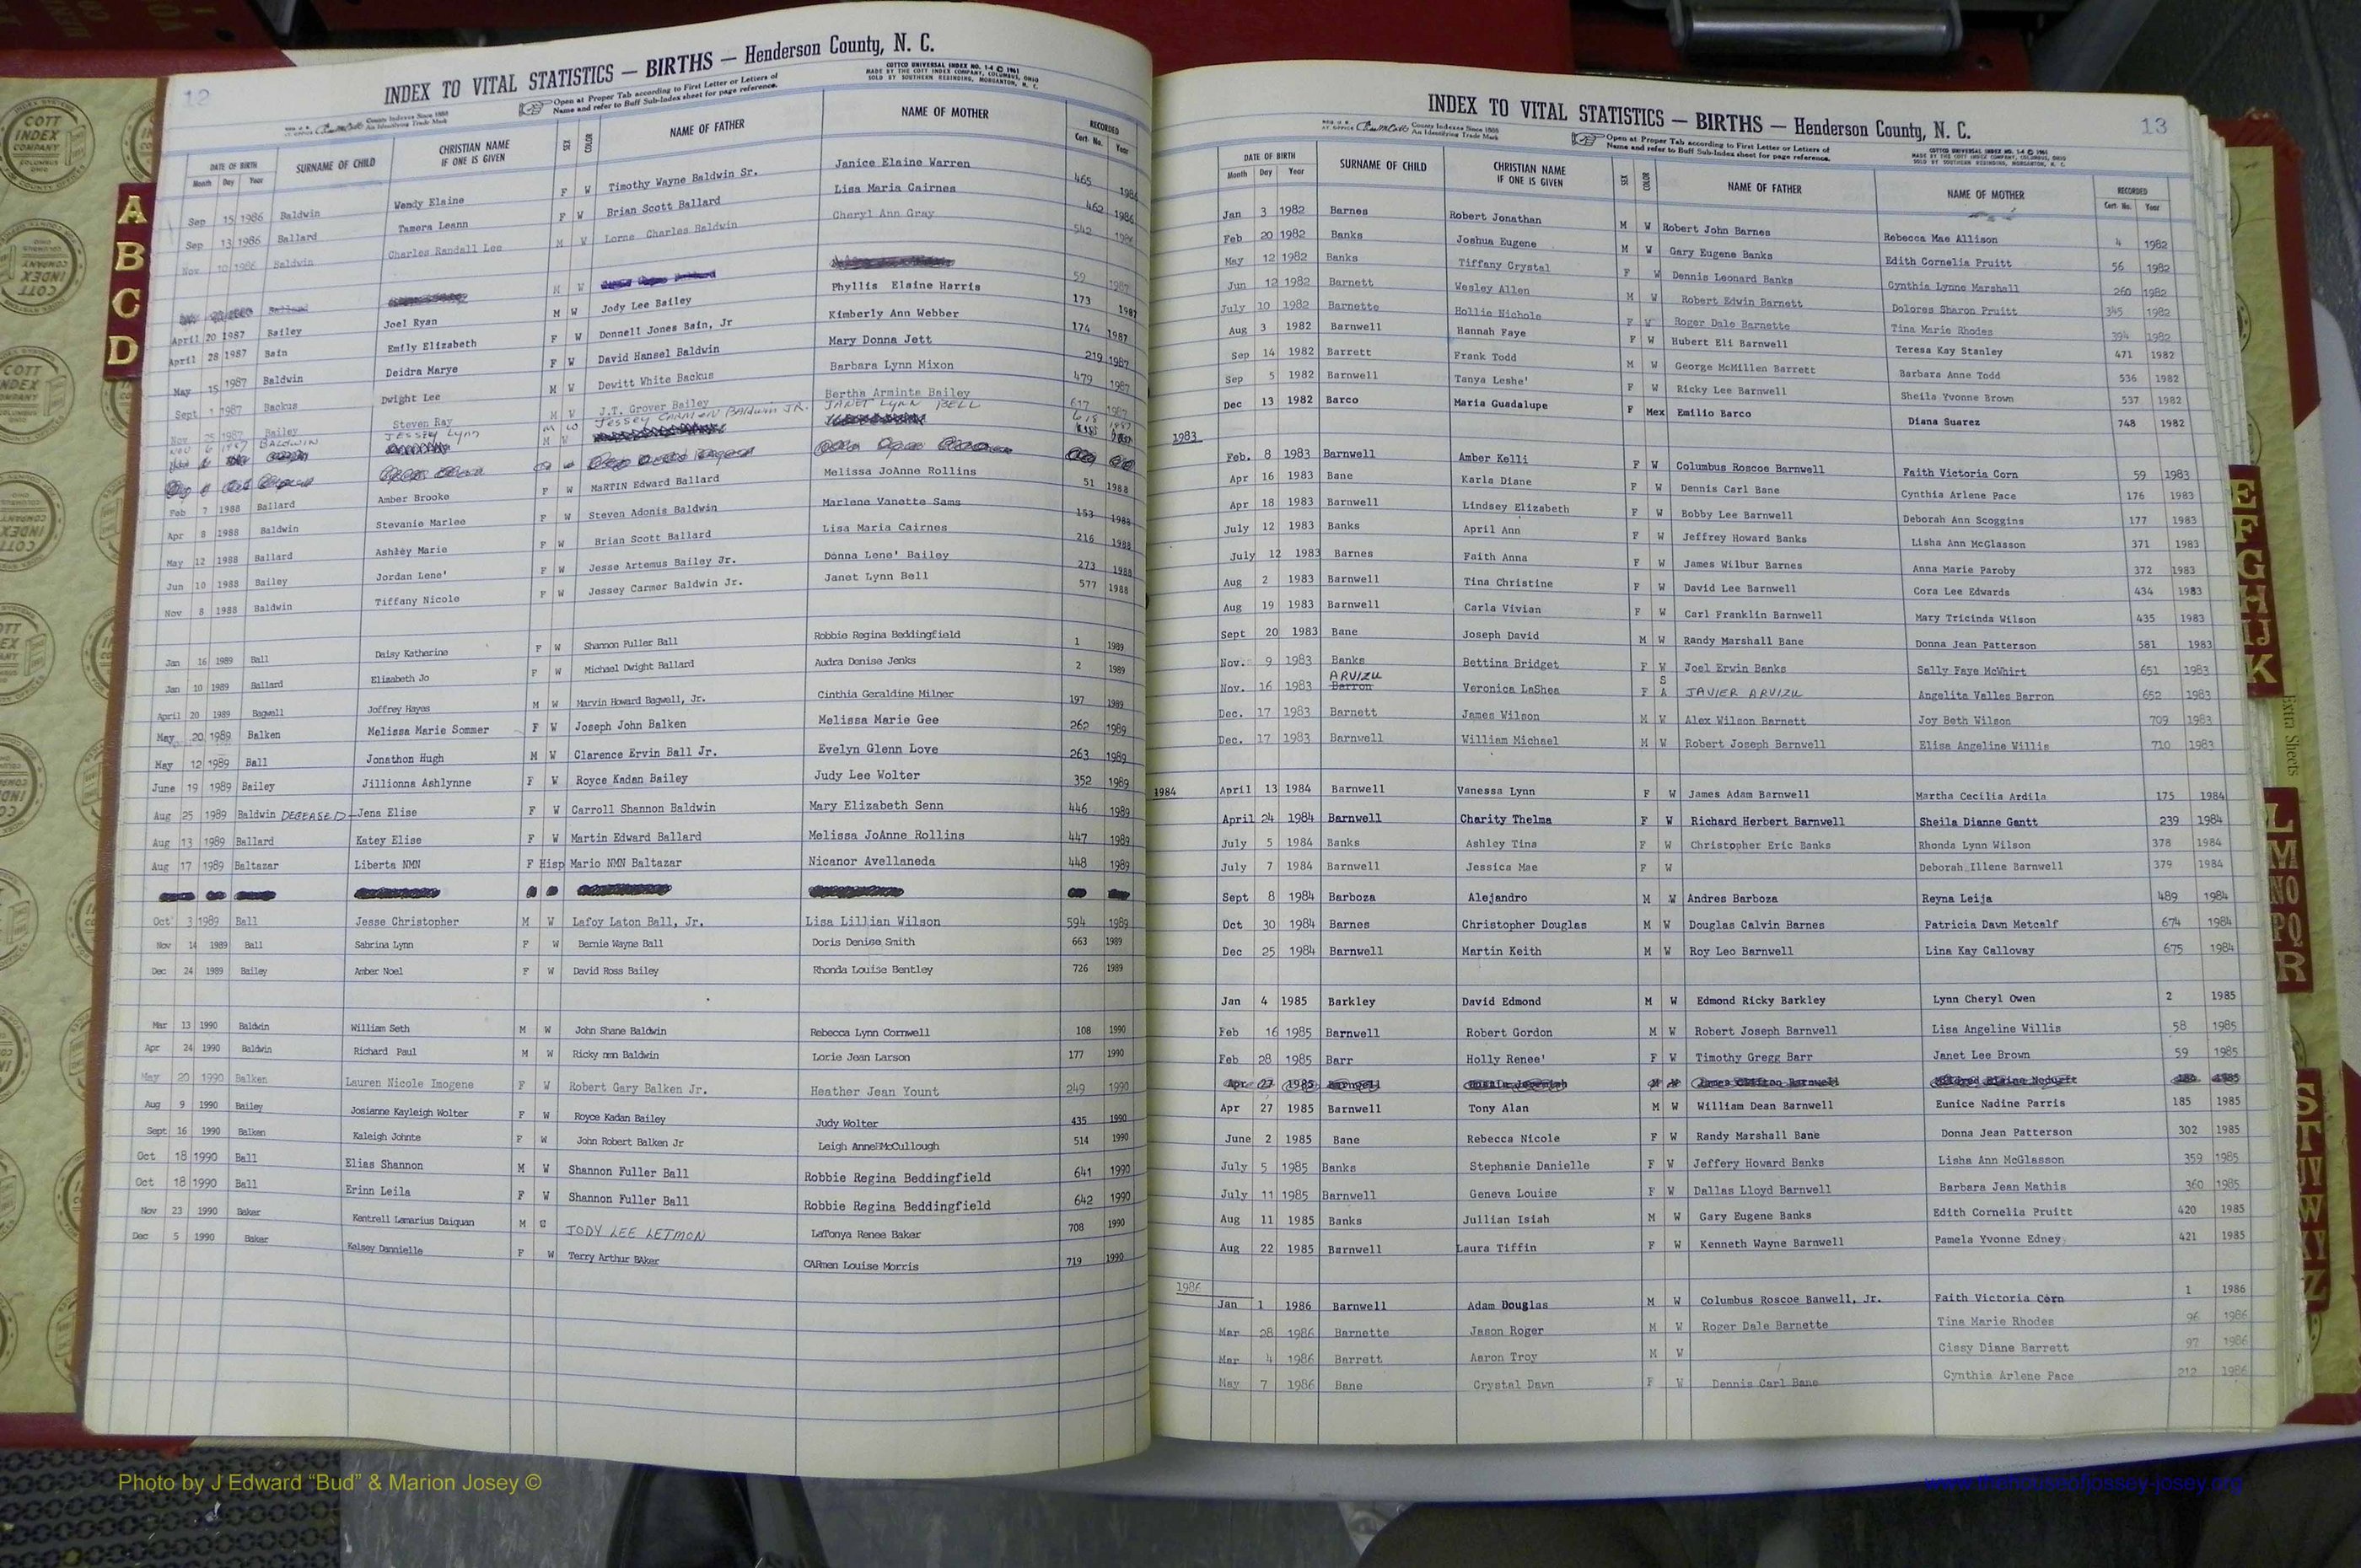 12
INDEX TO VITAL STATISTICS — BIRTHS — Henderson County, N. C.
COTTCO UNIVERSAL INDEX NO. 1-4 © 1961
MADE BY THE COTT INDEX COMPANY, COLUMBUS, OHIO
SOLD BY SOUTHERN REBINDING, MORGANTON, N. C.
County Indexes Since 1888
An Identifying Trade Mark
Open at Proper Tab according to First Letter or Letters of
Name and refer to Buff Sub-Index sheet for page reference.
DATE OF BIRTH SURNAME OF CHILD CHRISTIAN NAME IF ONE IS GIVEN SEX COLOR NAME OF FATHER NAME OF MOTHER RECORDED
Month Day Year Cert. No. Year
Sep 15 1986 Baldwin Wendy Elaine F W Timothy Wayne Baldwin Sr. Janice Elaine Warren 465 1986
Sep 13 1986 Ballard Tamera Leann F W Brian Scott Ballard Lisa Maria Cairnes 462 1986
Nov 10 1986 Baldwin Charles Randall Lee M W Lorne Charles Baldwin Cheryl Ann Gray 542 1986
M W 59 1987
April 20 1987 Bailey Joel Ryan M W Jody Lee Bailey Phyllis Elaine Harris 173 1987
April 28 1987 Bain Emily Elizabeth F W Donnell Jones Bain, Jr Kimberly Ann Webber 174 1987
May 15 1987 Baldwin Deidra Marye F W David Hansel Baldwin Mary Donna Jett 219 1987
Sept 1 1987 Backus Dwight Lee M W Dewitt White Backus Barbara Lynn Mixon 479 1987
Nov 25 1987 Bailey Steven Ray M W J.T. Grover Bailey Bertha Arminta Bailey 617 1987
NOV 6 1987 BALDWIN JESSEY LYNN M W JESSEY CARMEN BALDWIN JR. JANET LYNN BELL 618 1987
Feb 7 1988 Ballard Amber Brooke F W MaRTIN Edward Ballard Melissa JoAnne Rollins 51 1988
Apr 8 1988 Baldwin Stevanie Marlee F W Steven Adonis Baldwin Marlene Vanette Sams 153 1988
May 12 1988 Ballard Ashley Marie F W Brian Scott Ballard Lisa Maria Cairnes 216 1988
Jun 10 1988 Bailey Jordan Lene' F W Jesse Artemus Bailey Jr. Donna Lene' Bailey 273 1988
Nov 8 1988 Baldwin Tiffany Nicole F W Jessey Carmer Baldwin Jr. Janet Lynn Bell 577 1988
Jan 16 1989 Ball Daisy Katherine F W Shannon Fuller Ball Robbie Regina Beddingfield 1 1989
Jan 10 1989 Ballard Elizabeth Jo F W Michael Dwight Ballard Audra Denise Jenks 2 1989
April 20 1989 Bagwell Joffrey Hayes M W Marvin Howard Bagwell, Jr. Cinthia Geraldine Milner 197 1989
May 20 1989 Balken Melissa Marie Sommer F W Joseph John Balken Melissa Marie Gee 262 1989
May 12 1989 Ball Jonathon Hugh M W Clarence Ervin Ball Jr. Evelyn Glenn Love 263 1989
June 19 1989 Bailey Jillionna Ashlynne F W Royce Kadan Bailey Judy Lee Wolter 352 1989
Aug 25 1989 Baldwin DECEASED Jena Elise F W Carroll Shannon Baldwin Mary Elizabeth Senn 446 1989
Aug 13 1989 Ballard Katey Elise F W Martin Edward Ballard Melissa JoAnne Rollins 447 1989
Aug 17 1989 Baltazar Liberta NMN F Hisp Mario NMN Baltazar Nicanor Avellaneda 448 1989
Oct 3 1989 Ball Jesse Christopher M W Lafoy Laton Ball, Jr. Lisa Lillian Wilson 594 1989
Nov 14 1989 Ball Sabrina Lynn F W Bernie Wayne Ball Doris Denise Smith 663 1989
Dec 24 1989 Bailey Amber Noel F W David Ross Bailey Rhonda Louise Bentley 726 1989
Mar 13 1990 Baldwin William Seth M W John Shane Baldwin Rebecca Lynn Cornwell 108 1990
Apr 24 1990 Baldwin Richard Paul M W Ricky nmn Baldwin Lorie Jean Larson 177 1990
May 20 1990 Balken Lauren Nicole Imogene F W Robert Gary Balken Jr. Heather Jean Yount 249 1990
Aug 9 1990 Bailey Josianne Kayleigh Wolter F W Royce Kadan Bailey Judy Wolter 435 1990
Sept 16 1990 Balken Kaleigh Johnte F W John Robert Balken Jr Leigh Anne McCullough 514 1990
Oct 18 1990 Ball Elias Shannon M W Shannon Fuller Ball Robbie Regina Beddingfield 641 1990
Oct 18 1990 Ball Erinn Leila F W Shannon Fuller Ball Robbie Regina Beddingfield 642 1990
Nov 23 1990 Baker Kentrell Lamarius Daiquan M JODY LEE LETMON LaTonya Renee Baker 708 1990
Dec 5 1990 Baker Kelsey Dannielle F W Terry Arthur BAker CARmen Louise Morris 719 1990
13
INDEX TO VITAL STATISTICS — BIRTHS — Henderson County, N. C.
County Indexes Since 1888
An Identifying Trade Mark
Open at Proper Tab according to First Letter or Letters of
Name and refer to Buff Sub-Index sheet for page reference.
COTTCO UNIVERSAL INDEX NO. 1-4 © 1961
MADE BY THE COTT INDEX COMPANY, COLUMBUS, OHIO
SOLD BY SOUTHERN REBINDING, MORGANTON, N. C.
DATE OF BIRTH SURNAME OF CHILD CHRISTIAN NAME IF ONE IS GIVEN SEX COLOR NAME OF FATHER NAME OF MOTHER RECORDED
Month Day Year Cert. No. Year
Jan 3 1982 Barnes Robert Jonathan M W Robert John Barnes Rebecca Mae Allison 4 1982
Feb 20 1982 Banks Joshua Eugene M W Gary Eugene Banks Edith Cornelia Pruitt 56 1982
May 12 1982 Banks Tiffany Crystal F W Dennis Leonard Banks Cynthia Lynne Marshall 260 1982
Jun 12 1982 Barnett Wesley Allen M W Robert Edwin Barnett Dolores Sharon Pruitt 345 1982
July 10 1982 Barnette Hollie Nichole F W Roger Dale Barnette Tina Marie Rhodes 394 1982
Aug 3 1982 Barnwell Hannah Faye F W Hubert Eli Barnwell Teresa Kay Stanley 471 1982
Sep 14 1982 Barrett Frank Todd M W George McMillen Barrett Barbara Anne Todd 536 1982
Sep 5 1982 Barnwell Tanya Leshe' F W Ricky Lee Barnwell Sheila Yvonne Brown 537 1982
Dec 13 1982 Barco Maria Guadalupe F Mex Emilio Barco Diana Suarez 748 1982
1983
Feb. 8 1983 Barnwell Amber Kelli F W Columbus Roscoe Barnwell Faith Victoria Corn 59 1983
Apr 16 1983 Bane Karla Diane F W Dennis Carl Bane Cynthia Arlene Pace 176 1983
Apr 18 1983 Barnwell Lindsey Elizabeth F W Bobby Lee Barnwell Deborah Ann Scoggins 177 1983
July 12 1983 Banks April Ann F W Jeffrey Howard Banks Lisha Ann McGlasson 371 1983
July 12 1983 Barnes Faith Anna F W James Wilbur Barnes Anna Marie Paroby 372 1983
Aug 2 1983 Barnwell Tina Christine F W David Lee Barnwell Cora Lee Edwards 434 1983
Aug 19 1983 Barnwell Carla Vivian F W Carl Franklin Barnwell Mary Tricinda Wilson 435 1983
Sept 20 1983 Bane Joseph David M W Randy Marshall Bane Donna Jean Patterson 581 1983
Nov. 9 1983 Banks Bettina Bridget F W Joel Erwin Banks Sally Faye McWhirt 651 1983
ARVIZU S
Nov. 16 1983 Barron Veronica LaShea F A JAVIER ARVIZU Angelita Valles Barron 652 1983
Dec. 17 1983 Barnett James Wilson M W Alex Wilson Barnett Joy Beth Wilson 709 1983
Dec. 17 1983 Barnwell William Michael M W Robert Joseph Barnwell Elisa Angeline Willis 710 1983
1984 April 13 1984 Barnwell Vanessa Lynn F W James Adam Barnwell Martha Cecilia Ardila 175 1984
April 24 1984 Barnwell Charity Thelma F W Richard Herbert Barnwell Sheila Dianne Gantt 239 1984
July 5 1984 Banks Ashley Tina F W Christopher Eric Banks Rhonda Lynn Wilson 378 1984
July 7 1984 Barnwell Jessica Mae F W Deborah Illene Barnwell 379 1984
Sept 8 1984 Barboza Alejandro M W Andres Barboza Reyna Leija 489 1984
Oct 30 1984 Barnes Christopher Douglas M W Douglas Calvin Barnes Patricia Dawn Metcalf 674 1984
Dec 25 1984 Barnwell Martin Keith M W Roy Leo Barnwell Lina Kay Calloway 675 1984
Jan 4 1985 Barkley David Edmond M W Edmond Ricky Barkley Lynn Cheryl Owen 2 1985
Feb 16 1985 Barnwell Robert Gordon M W Robert Joseph Barnwell Lisa Angeline Willis 58 1985
Feb 28 1985 Barr Holly Renee' F W Timothy Gregg Barr Janet Lee Brown 59 1985
Apr 27 1985 Barnwell
Apr 27 1985 Barnwell Tony Alan M W William Dean Barnwell Eunice Nadine Parris 185 1985
June 2 1985 Bane Rebecca Nicole F W Randy Marshall Bane Donna Jean Patterson 302 1985
July 5 1985 Banks Stephanie Danielle F W Jeffery Howard Banks Lisha Ann McGlasson 359 1985
July 11 1985 Barnwell Geneva Louise F W Dallas Lloyd Barnwell Barbara Jean Mathis 360 1985
Aug 11 1985 Banks Jullian Isiah M W Gary Eugene Banks Edith Cornelia Pruitt 420 1985
Aug 22 1985 Barnwell Laura Tiffin F W Kenneth Wayne Barnwell Pamela Yvonne Edney 421 1985
1986
Jan 1 1986 Barnwell Adam Douglas M W Columbus Roscoe Banwell, Jr. Faith Victoria Corn 1 1986
Mar 28 1986 Barnette Jason Roger M W Roger Dale Barnette Tina Marie Rhodes 96 1986
Mar 4 1986 Barrett Aaron Troy M W Cissy Diane Barrett 97 1986
May 7 1986 Bane Crystal Dawn F W Dennis Carl Bane Cynthia Arlene Pace 212 1986
A
B
C
D
E
F
G
H
IJ
K
Extra Sheets
L
M
NO
PQ
R
S
T
UV
W
XY
Z
COTT INDEX COMPANY
Photo by J Edward “Bud” & Marion Josey ©
www.thehouseofjossey-josey.org